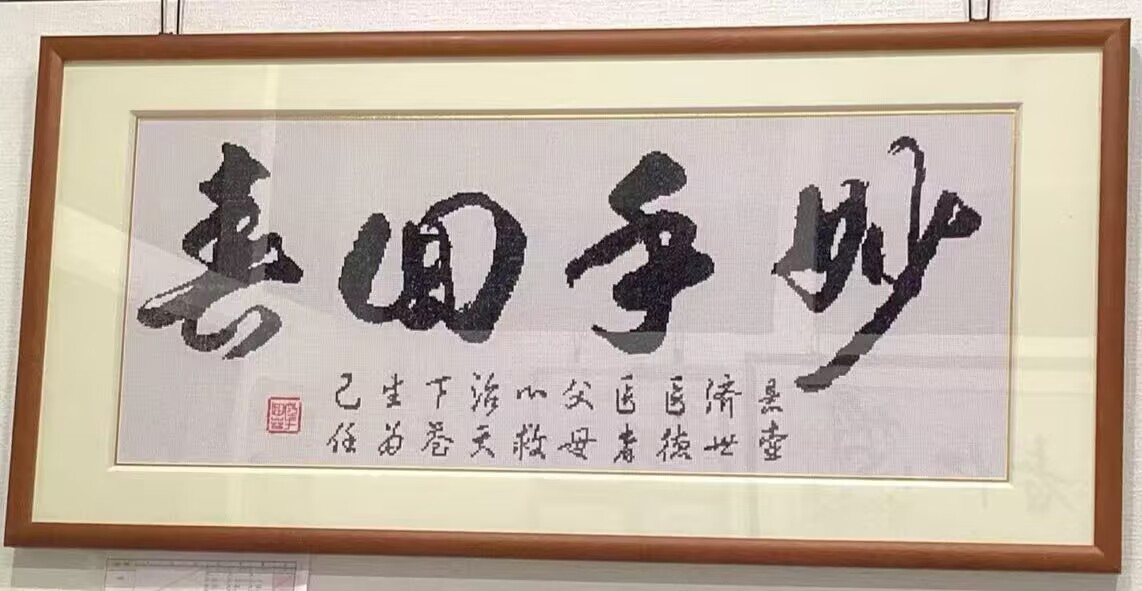 妙手回春
悬壶
济世
医德
医者
父母
心救
治天
下苍
生为
己任